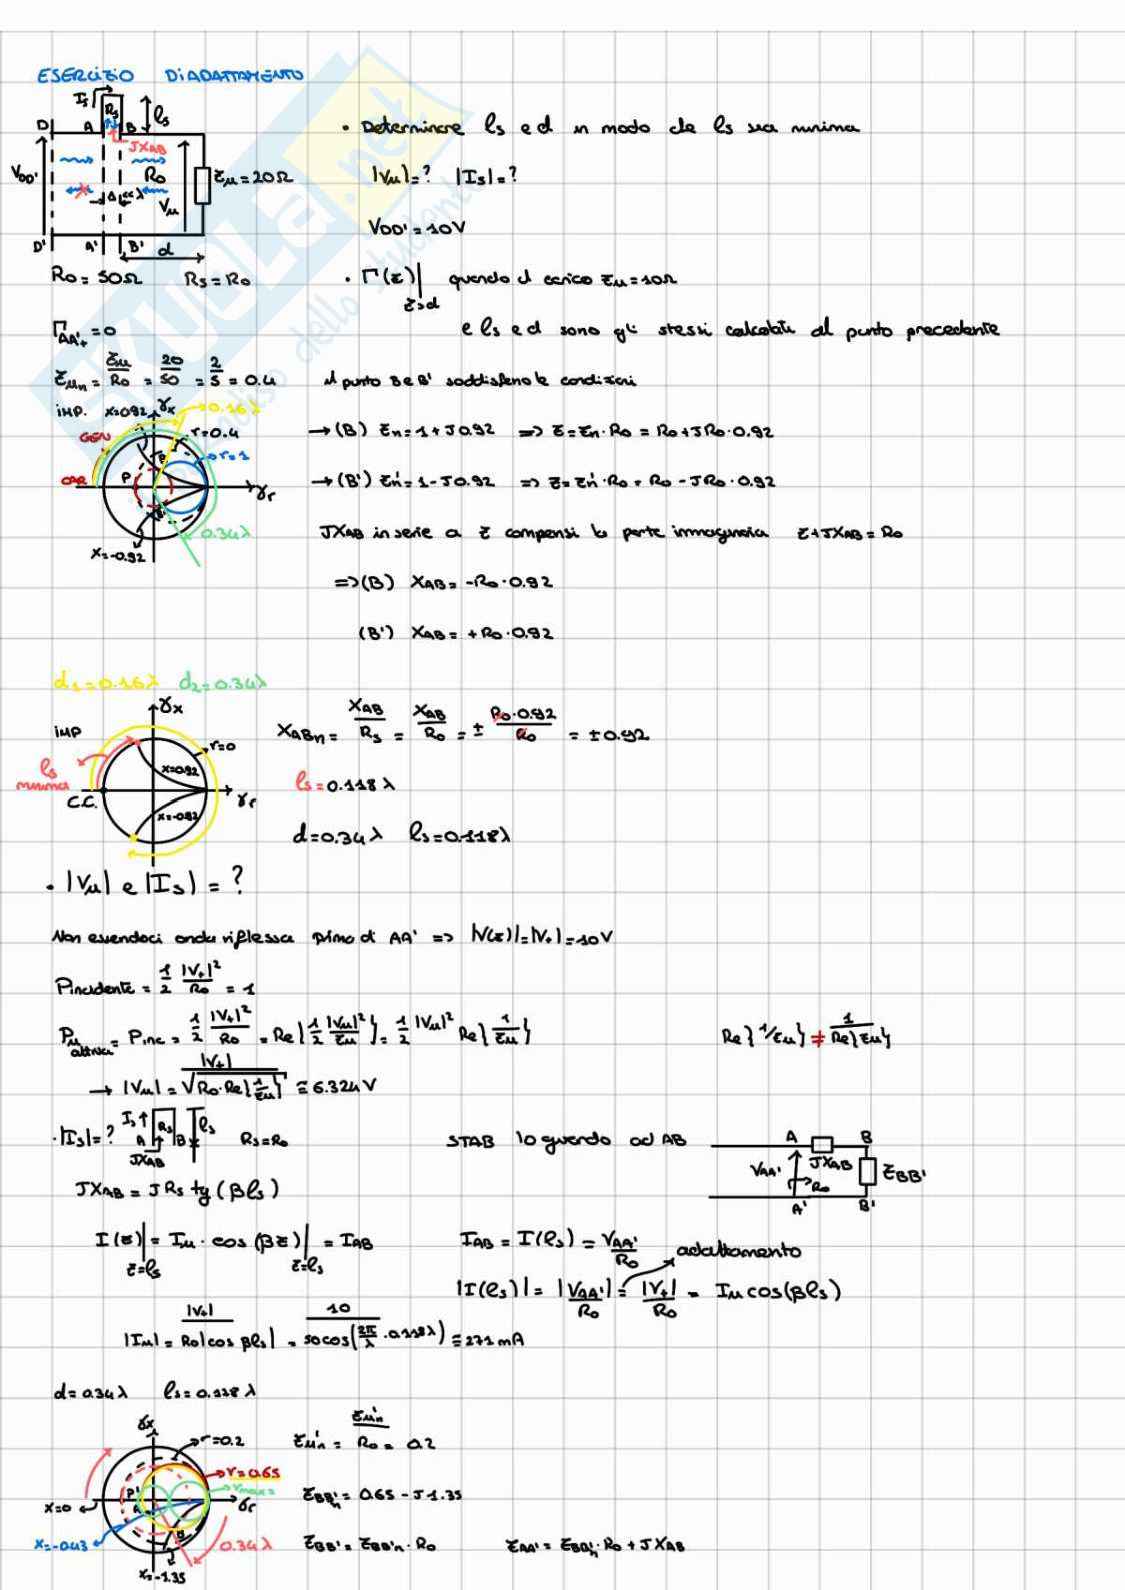 ESERCIZIO DI ADATTAMENTO
Is
Rs
ls
D A B
JXAB
VDD'
R0
Zu = 20Ω
Δ << λ
Vu
D' A' B'
d
R0 = 50Ω Rs = R0
• Determinare ls e d in modo che ls sia minima
|Vu| = ? |Is| = ?
VDD' = 10V
• Γ(z)|z>d quando il carico Zu = 10Ω
e ls e d sono gli stessi calcolati al punto precedente
ΓAA'+ = 0
Zun = Zu/R0 = 20/50 = 2/5 = 0.4
il punto B e B' soddisfano le condizioni
IMP. x=0.92 γx 0.16λ
GEN
r=0.4
r=1
CAR
P
γr
0.34λ
x=-0.92
→ (B) Zn = 1 + J0.92 => Z = Zn·R0 = R0 + JR0·0.92
→ (B') Zn' = 1 - J0.92 => Z = Zn'·R0 = R0 - JR0·0.92
JXAB in serie a Z compensi la parte immaginaria Z + JXAB = R0
=> (B) XAB = -R0·0.92
(B') XAB = +R0·0.92
d1 = 0.16λ d2 = 0.34λ
γx
IMP
r=0
x=0.92
ls
minima
C.C.
γr
x=-0.92
XABn = XAB/Rs = XAB/R0 = ± R0·0.92/R0 = ±0.92
ls = 0.118λ
d = 0.34λ ls = 0.118λ
• |Vu| e |Is| = ?
Non essendoci onda riflessa prima di AA' => |V(z)| = |V+| = 10V
Pincidente = 1/2 |V+|²/R0 = 1
Pu attiva = Pinc = 1/2 |V+|²/R0 = Re{1/2 |Vu|²/Zu} = 1/2 |Vu|² Re{1/Zu}
Re{1/Zu} ≠ 1/Re{Zu}
→ |Vu| = |V+|/√R0·Re{1/Zu} ≅ 6.324V
• |Is| = ? Is Rs ls
A B
JXAB
Rs = R0
STAB lo guardo ad AB
A B
VAA' JXAB ZBB'
R0
A' B'
JXAB = J Rs tg(βls)
I(z)|z=ls = Iu · cos(βz)|z=ls = IAB
IAB = I(ls) = VAA'/R0
adattamento
|I(ls)| = |VAA'|/R0 = |V+|/R0 = Iu cos(βls)
|Iu| = |V+|/R0|cos βls| = 10/50cos(2π/λ · 0.118λ) ≅ 271mA
d = 0.34λ ls = 0.118λ
γx
r=0.2
r=0.65
rmax=
P'
x=0
γr
x=-0.43
0.34λ
x=-1.35
Zu'n = Zu'n/R0 = 0.2
ZBB'n = 0.65 - J1.35
ZBB' = ZBB'n · R0 ZAA' = ZBB'n · R0 + JXAB